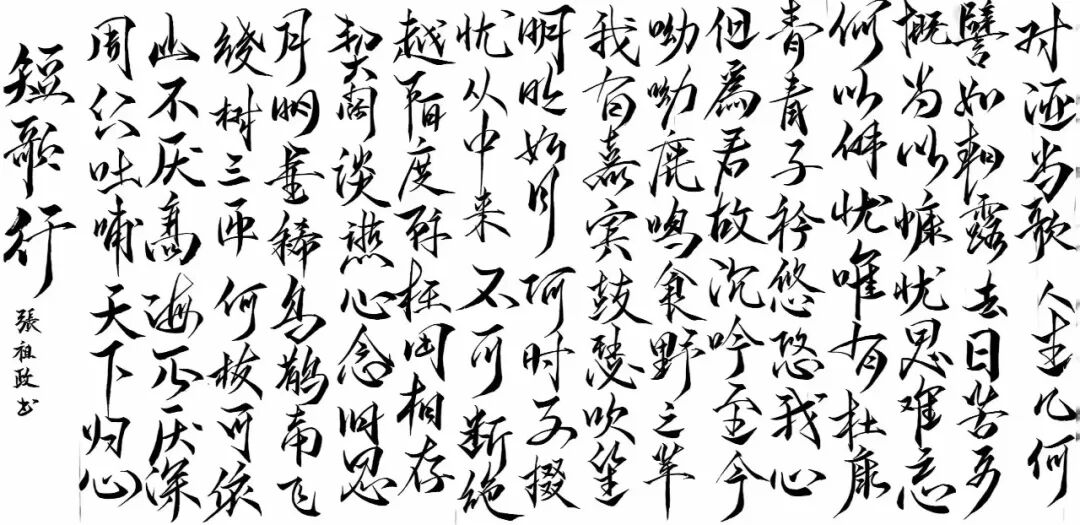 对酒当歌人生几何
譬如朝露去日苦多
慨当以慷忧思难忘
何以解忧唯有杜康
青青子衿悠悠我心
但為君故沉吟至今
呦呦鹿鸣食野之苹
我有嘉宾鼓瑟吹笙
明明如月何时可掇
忧从中来不可断绝
越陌度阡枉用相存
契阔谈讌心念旧恩
月明星稀乌鹊南飞
绕树三匝何枝可依
山不厌高海不厌深
周公吐哺天下归心
短歌行
張祖政书